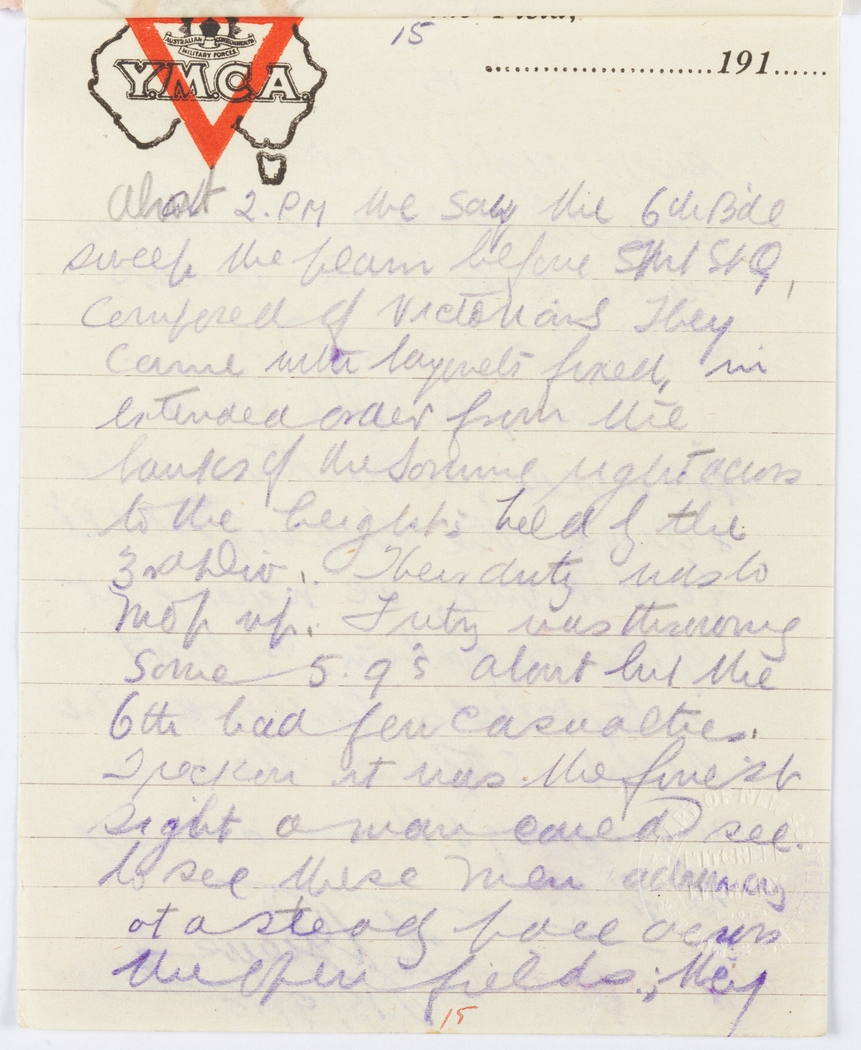 15
191
AUSTRALIAN COMMONWEALTH
MILITARY FORCES
Y.M.C.A.
About 2. PM we saw the 6th Bde
sweep the plain before Mt St Q,
Composed of Victorians They
came with bayonets fixed, in
extended order from the
banks of the Somme right across
to the heights held by the
3rd Div. Their duty was to
mop up. Fritz was throwing
some 5.9's about but the
6th had few casualties.
I reckon it was the finest
sight a man could see.
to see these men advancing
at a steady pace across
the open fields; they
15